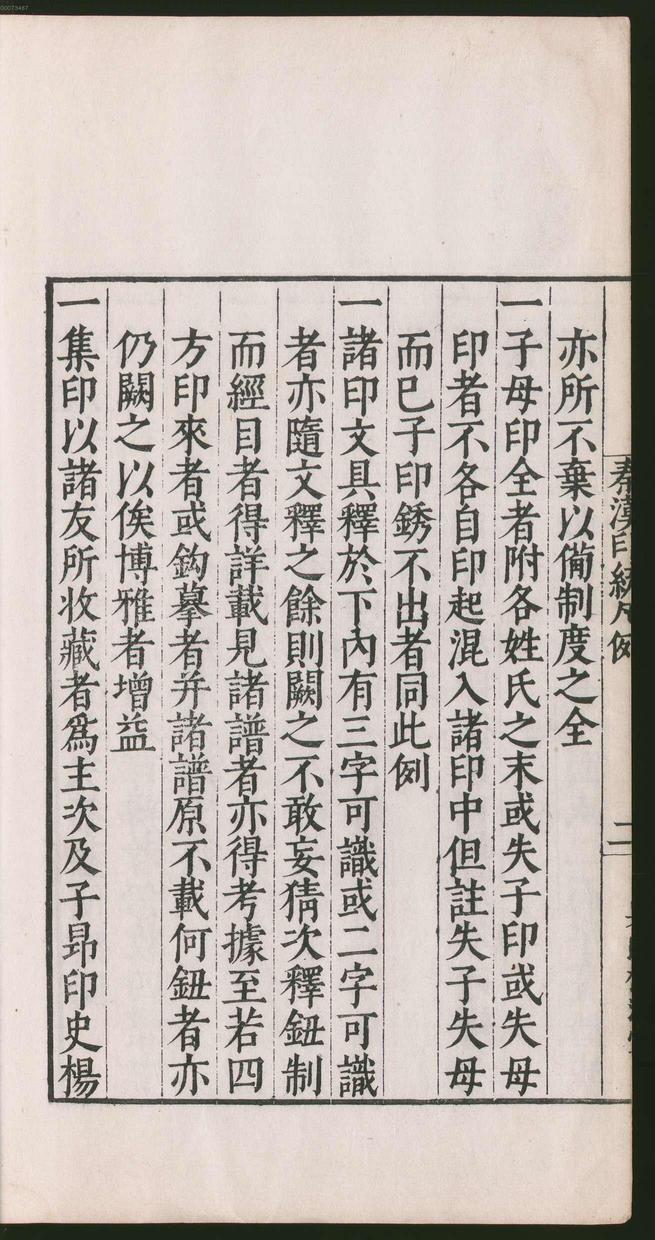 00073467
秦漢印統凡例
二
亦所不棄以備制度之全
一子母印全者附各姓氏之末或失子印或失母
印者不各自印起混入諸印中但註失子失母
而已子印銹不出者同此例
一諸印文具釋於下內有三字可識或二字可識
者亦隨文釋之餘則闕之不敢妄猜次釋鈕制
而經目者得詳載見諸譜者亦得考據至若四
方印來者或鈎摹者并諸譜原不載何鈕者亦
仍闕之以俟博雅者增益
一集印以諸友所收藏者爲主次及子昂印史楊